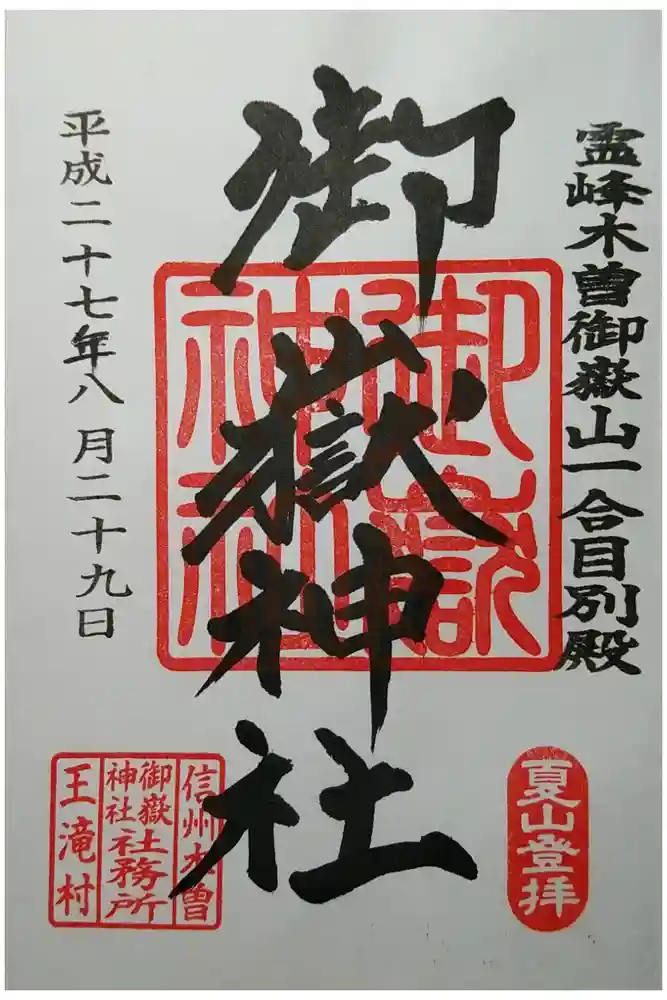 霊峰木曽御嶽山一合目別殿
御嶽神社
御嶽
神社
平成二十七年八月二十九日
夏山登拝
信州木曽
御嶽
神社
社務所
王滝村